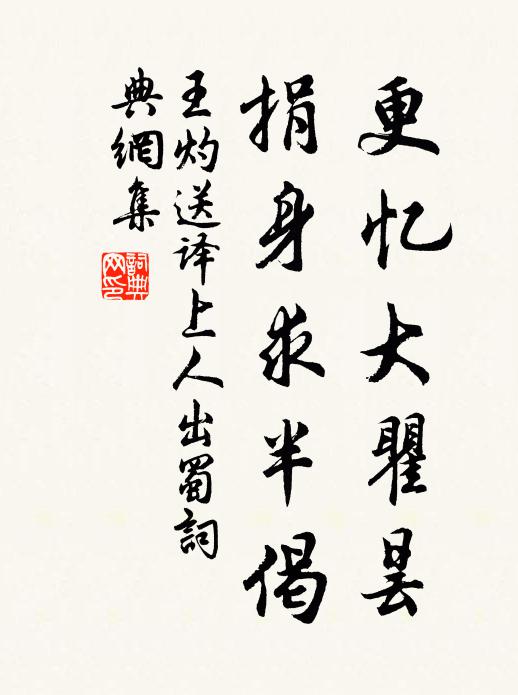 更忆大瞿昙
捐身求半偈
王灼送译上人出蜀詞
典網集
詞典網印